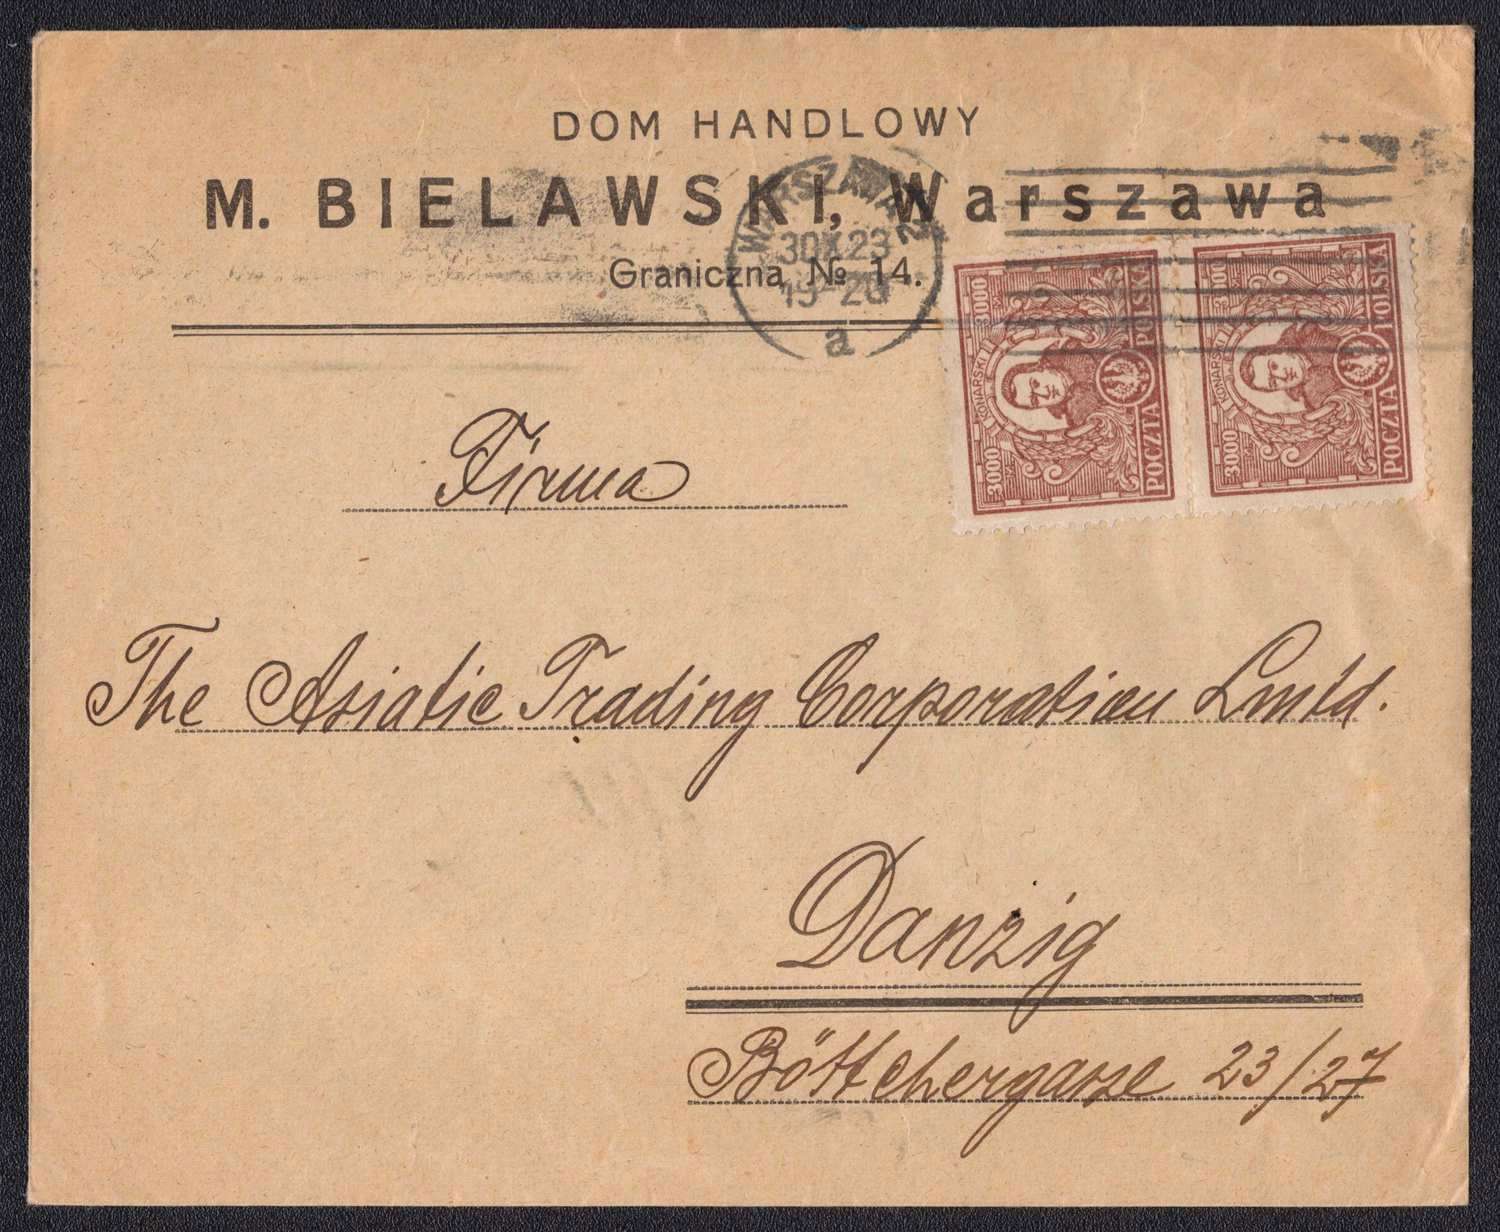 DOM HANDLOWY
M. BIELAWSKI, Warszawa
Graniczna № 14.
WARSZAWA 2
30 X 23
19-20
a
3000 KONARSKI 3000
POCZTA POLSKA
3000 KONARSKI 3000
POCZTA POLSKA
Firma
The Asiatic Trading Corporation Lmtd.
Danzig
Böttchergasse 23/27